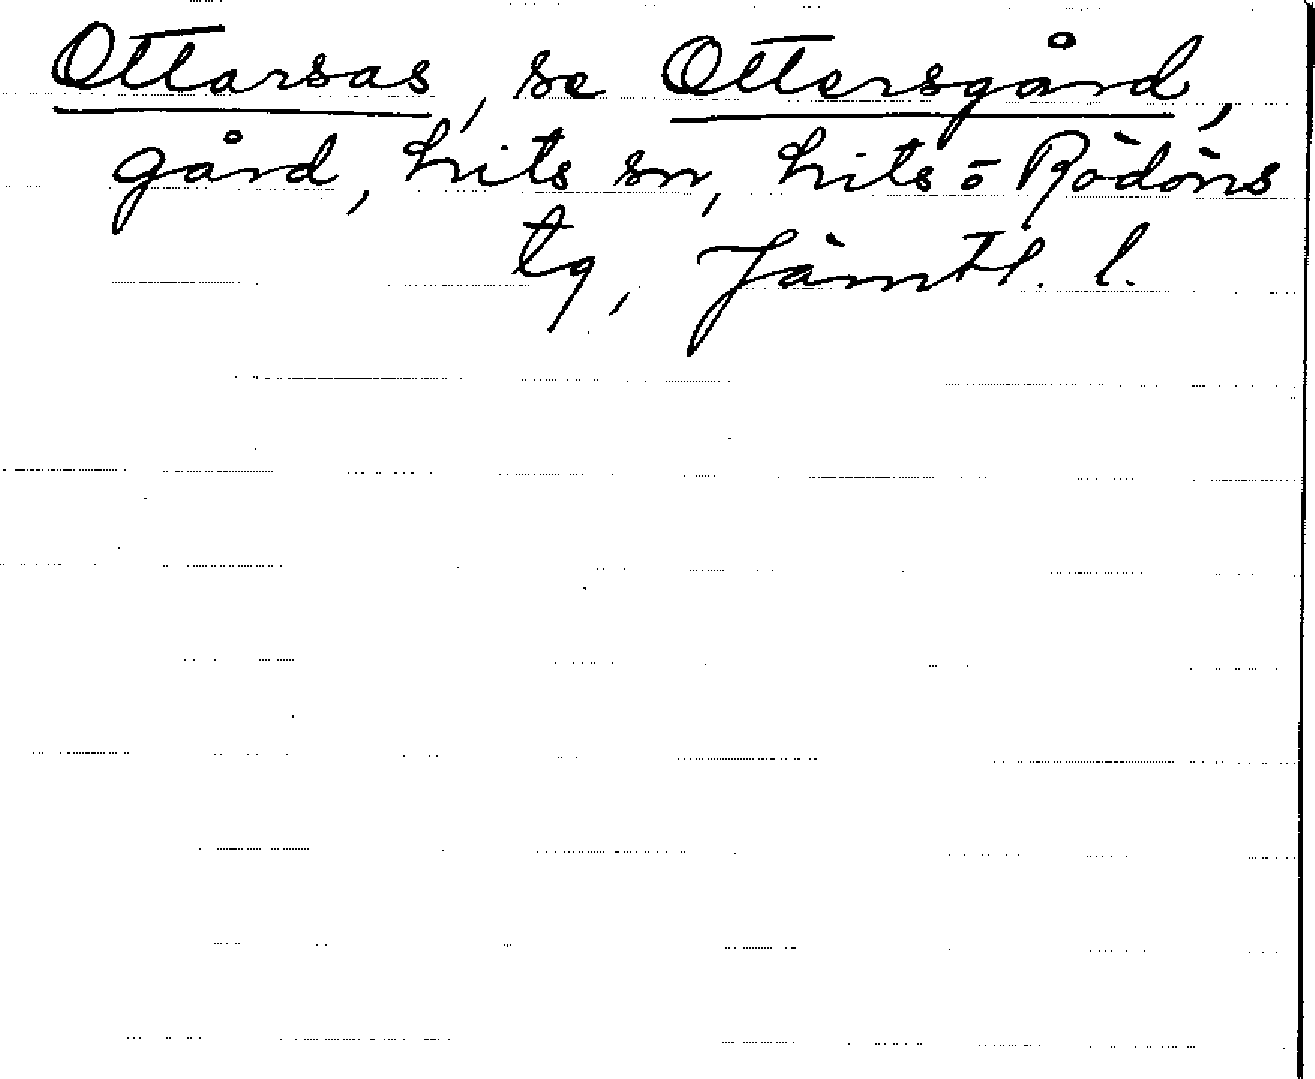 Ottarsas, se Ottersgård,
gård, Lits sn, Lits o Rödöns
tg, Jämtl. l.